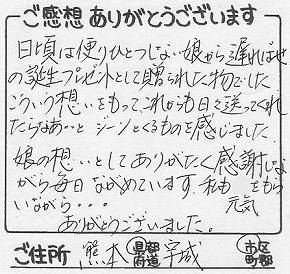 ご感想ありがとうございます
日頃は便りひとつしない娘から遅ればせ
の誕生プレゼントとして贈られた物でした
こういう想いをもって、これからも日々送ってくれ
たらなあ…と ジーンとくるものを感じました。
娘の想いとしてありがたく感謝しな
がら毎日ながめています。私も元気をもら
いながら・・・
ありがとうございました。
ご住所 熊本 都道府県 宇城 市区町郡